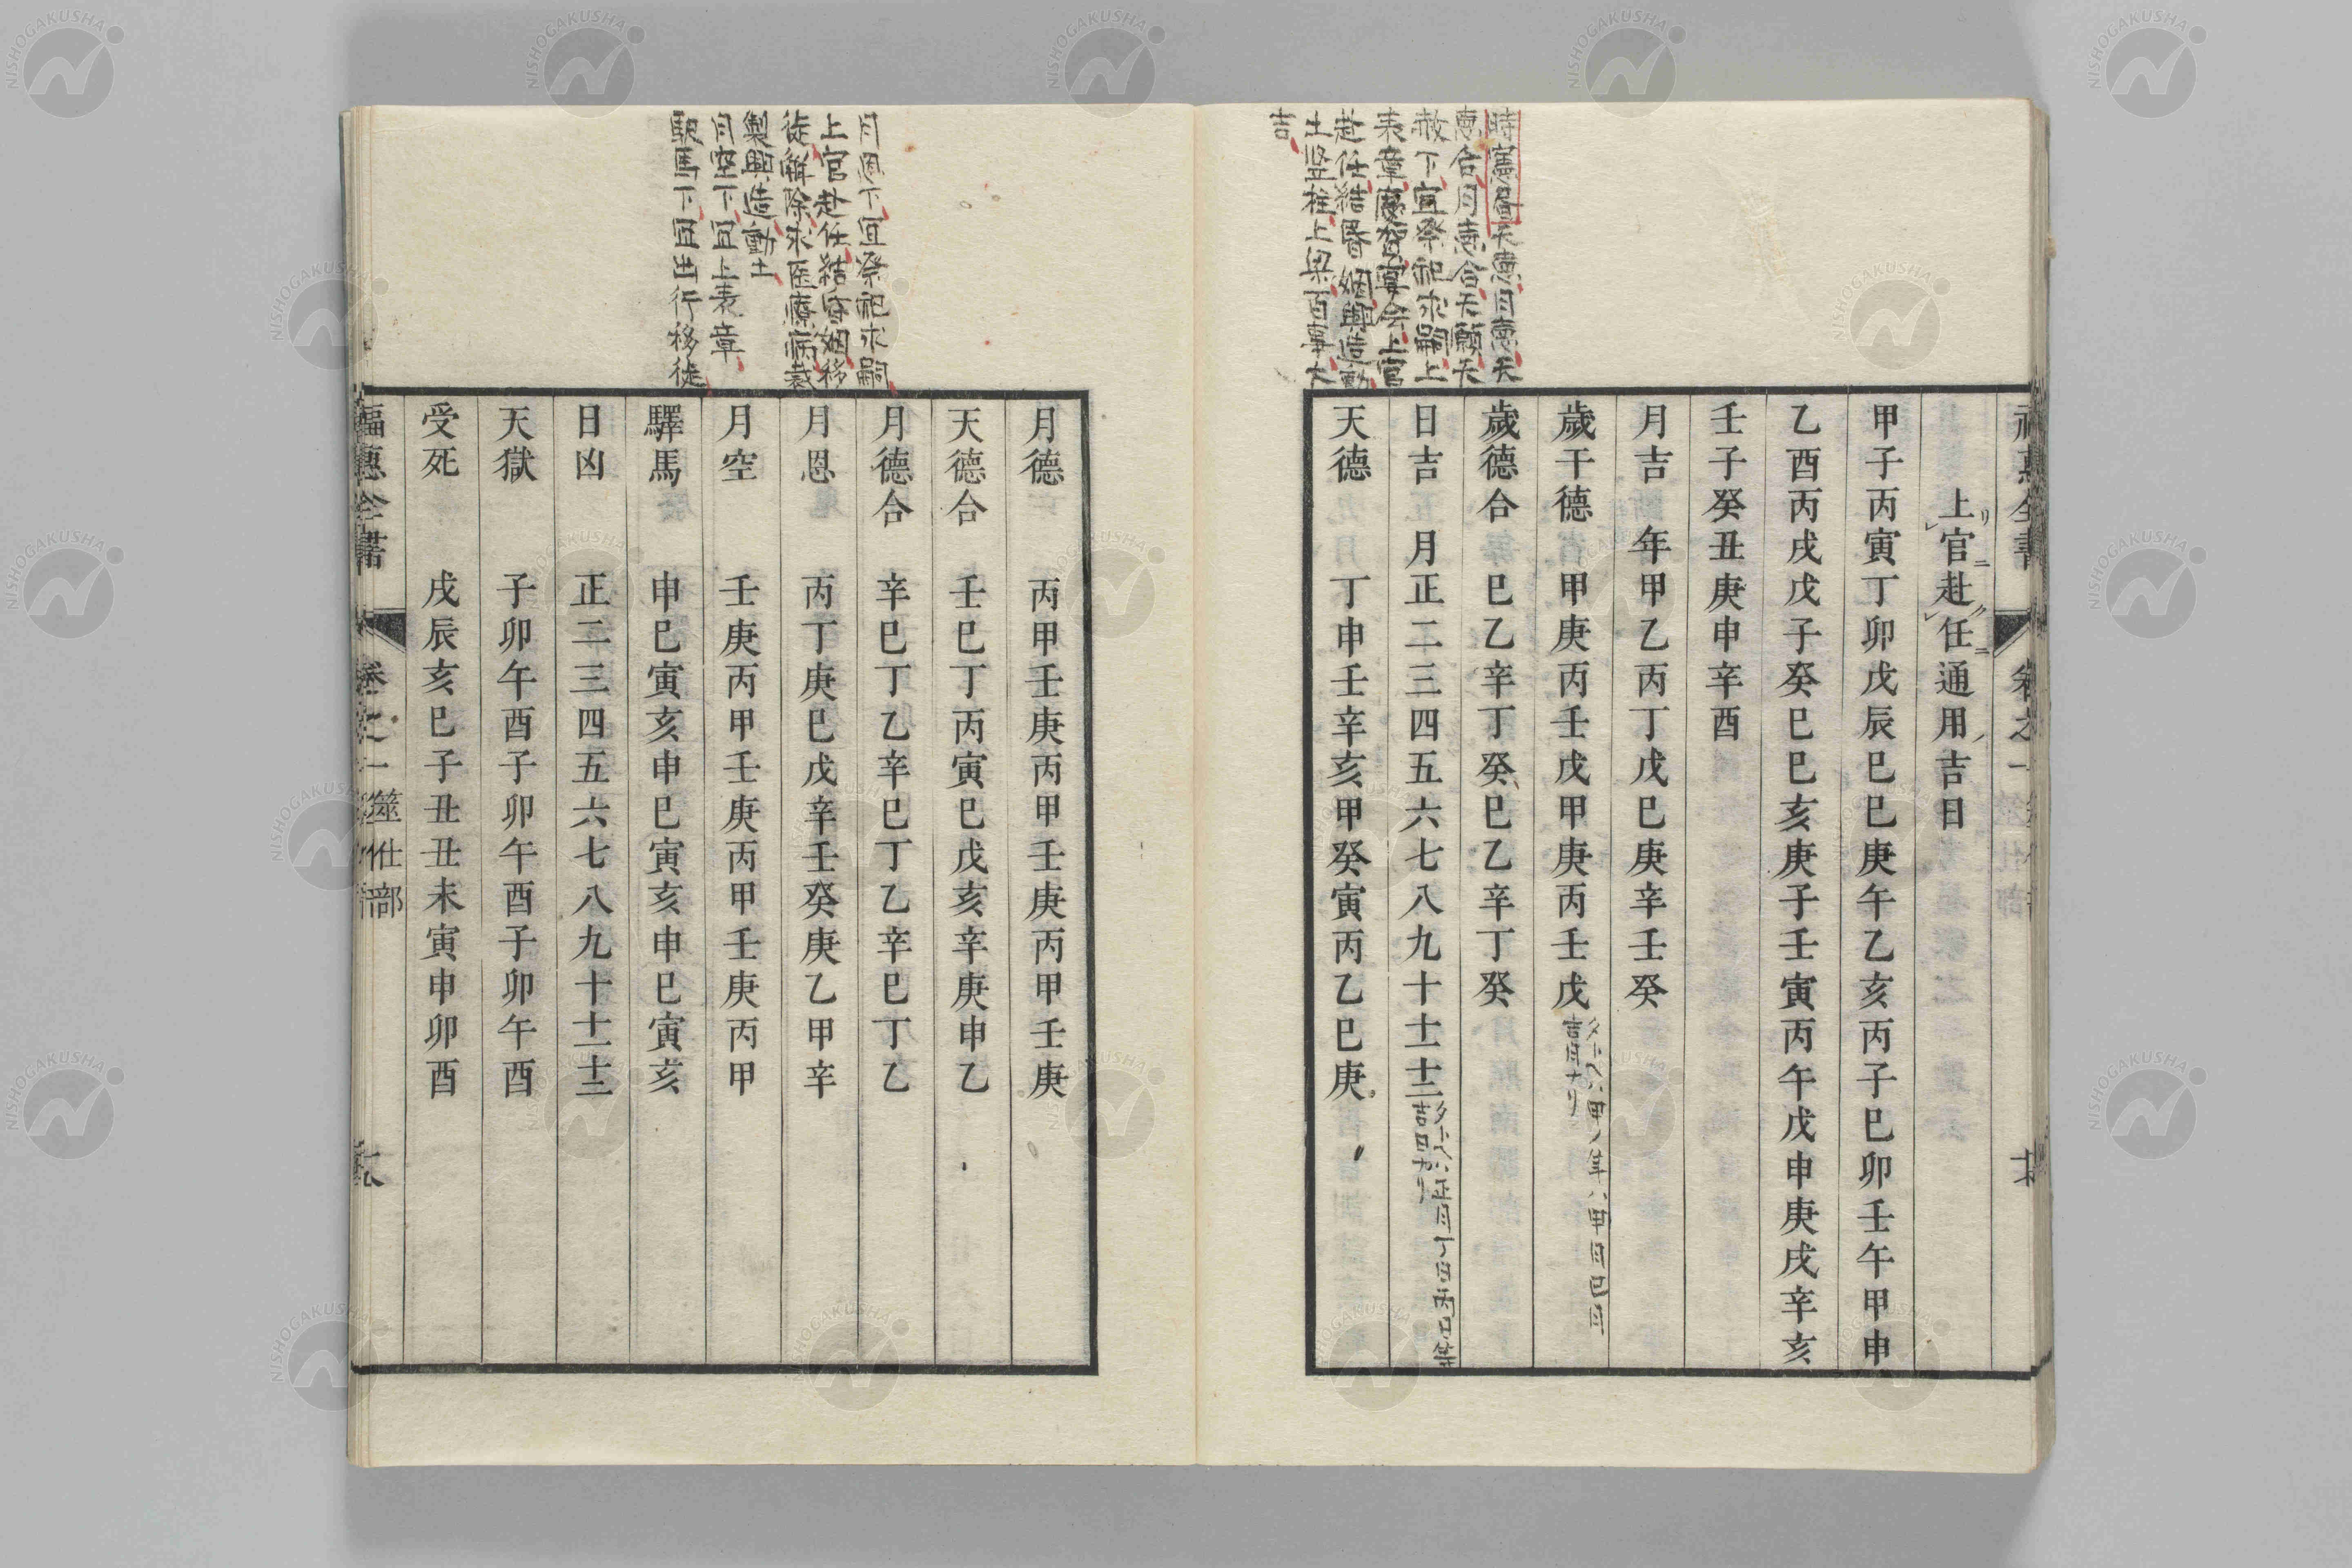 時憲書天德月德天
德合月德合天願天
赦下宜祭祀求嗣上
表章慶賀宴会上官
赴任結婚姻興造動
土竪柱上梁百事大
吉
上官赴任通用吉日
甲子丙寅丁卯戊辰巳巳庚午乙亥丙子巳卯壬午甲申
乙酉丙戌戊子癸巳巳亥庚子壬寅丙午戊申庚戌辛亥
壬子癸丑庚申辛酉
月吉 年甲乙丙丁戊巳庚辛壬癸
歲干德 甲庚丙壬戊甲庚丙壬戊
タトヘハ甲ノ年ハ甲月巳月
吉月ナリ
歲德合 巳乙辛丁癸巳乙辛丁癸
日吉 月正二三四五六七八九十十一十二
タトヘハ正月丁日丙日等
吉日ナリ
天德 丁申壬辛亥甲癸寅丙乙巳庚
月恩下宜祭祀求嗣
上官赴任結婚姻移
徙解除求医療病裁
製興造動土
月空下宜上表章
駅馬下宜出行移徙
月德 丙甲壬庚丙甲壬庚丙甲壬庚
天德合 壬巳丁丙寅巳戊亥辛庚申乙
月德合 辛巳丁乙辛巳丁乙辛巳丁乙
月恩 丙丁庚巳戊辛壬癸庚乙甲辛
月空 壬庚丙甲壬庚丙甲壬庚丙甲
驛馬 申巳寅亥申巳寅亥申巳寅亥
日凶 正二三四五六七八九十十一十二
天獄 子卯午酉子卯午酉子卯午酉
受死 戌辰亥巳子丑丑未寅申卯酉
福惠全書 卷之一 筮仕部
NISHOGAKUSHA